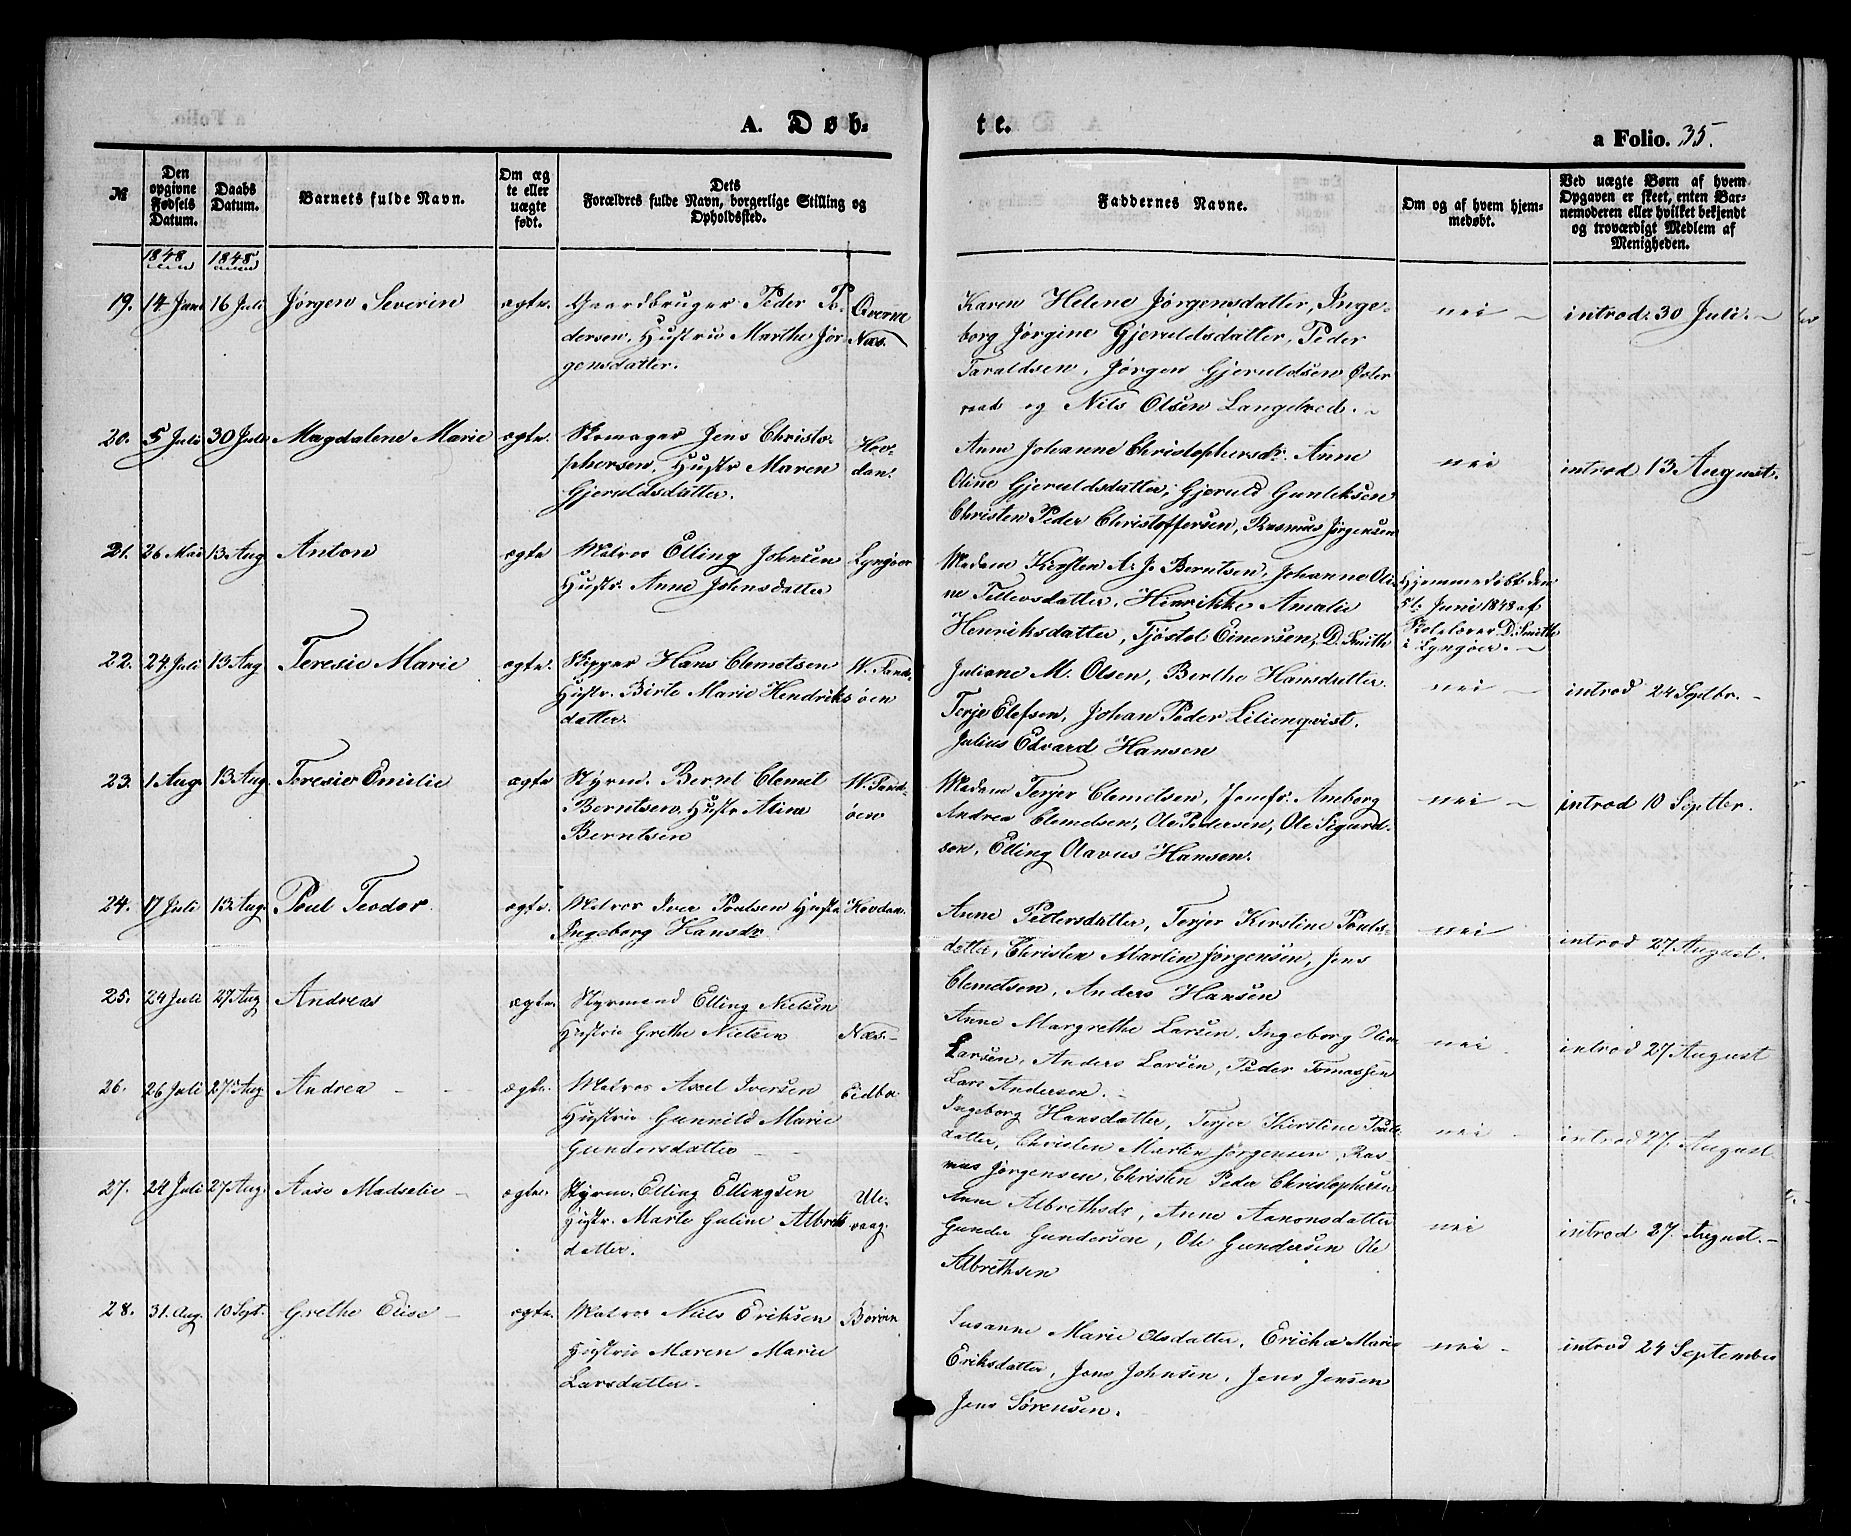 A. Døb-
te.
a Folio. 35.
№
Den opgivne Fødsels Datum.
Daabs Datum.
Barnets fulde Navn.
Om ægte eller uægte født.
Dets Forældres fulde Navn, borgerlige Stilling og Opholdssted.
Faddernes Navne.
Om og af hvem hjemmedøbt.
Ved uægte Børn af hvem Opgaven er skeet, enten Barnemoderen eller hvilket bekjendt og troværdigt Medlem af Menigheden.
1848 1848
19. 14 Juni 16 Juli Jørgen Severin ægte. Gaardbruger Peder Pe-
dersen, Hustrue Marthe Jør-
gensdatter.
Øverne
Næs.
Karen Helene Jørgensdatter, Inge-
borg Jørgine Gjeruldsdatter, Peder
Taraldsen, Jørgen Gjeruldsen Øster
raad og Nils Olsen Langelred.
nei
introd: 30 Juli.
20. 5 Juli 30 Juli Magdalene Marie ægte. Skomager Jens Christo-
phersen, Hustr Maren
Gjeruldsdatter.
Hov-
dan.
Anne Johanne Christophersdr. Anne
Oline Gjeruldsdatter, Gjeruld Gunleksen
Christen Peder Christoffersen, Rasmus Jørgensen
nei
introd 13 August.
21. 26 Mai 13 Aug Anton ægte Matros Elling Johnsen
Hustr. Anne Johnsdatter
Lyngøer
Madam Kirsten A. J. Berntsen, Johanne Oli-
ne Tellevsdatter, Hinrikke Amalie
Henriksdatter, Tjøstel Einersen, D. Smith
Hjemmedøbt den
5t. Juni 1848 af
Skolelærer D. Smith
i Lyngøer.
22. 24 Juli 13 Aug Teresie Marie ægte. Skipper Hans Clemetsen
Hustr. Birte Marie Hendriks
datter.
W. Sand-
øen
Juliane M. Olsen, Berthe Hansdatter.
Terje Elefsen, Johan Peder Lilienqvist.
Julius Edvard Hansen
nei
introd 24 Septbr.
23. 1 Aug. 13 Aug. Teresie Emilie ægte Styrm. Bernt Clemet
Berntsen. Hustr Aline
Berntsen
W. Sand-
øen
Madam Terjer Clemetsen, Jomfr. Aneborg
Andrea Clemetsen, Ole Pedersen, Ole Sigurd-
sen, Elling Olavus Hansen.
nei
introd 10 Septber.
24. 17 Juli 13 Aug. Poul Teodor. ægte. Matros Iver Poulsen Hustr
Ingeborg Hansdr
Hovdan.
Anne Pettersdatter, Terjer Kirstine Pouls-
datter, Christen Martin Jørgensen, Jens
Clemetsen, Anders Hansen
nei
introd 27 August.
25. 24 Juli 27 Aug Andreas ægte. Styrmand Elling Nielsen
Hustrie Grethe Nielsen
Næs.
Anne Margrethe Larsen, Ingeborg Oline
Larsen, Anders Larsen, Peder Tomassen
Lars Andersen.
nei
introd 27 August
26. 26 Juli 27 Aug Andrea ægte. Matros Axel Iversen
Hustrie Gunnild Marie
Gundersdatter
Eidbo
Ingeborg Hansdatter, Terjer Kierstine Pouls-
datter, Christen Martin Jørgensen, Ras
mus Jørgensen, Christen Peder Christophersen
nei
introd 27. August
27. 24 Juli 27 Aug. Aase Madselie ægte. Styrm. Elling Ellingsen
Hustr. Marte Guline Albreths
datter.
Ule-
vaag
Anne Albrethsdr, Anne Aanonsdatter
Gunder Gundersen, Ole Gundersen Ole
Albrethsen
nei
introd 27. August.
28. 31. Aug. 10 Sept. Grethe Elise ægte. Matros Niels Eriksen
Hustrie Maren Marie
Larsdatter
Borøen
Susanne Marie Olsdatter, Ericha Marie
Eriksdatter, Jens Johnsen, Jens Jensen
Jens Sørensen.
nei
introd 24 September